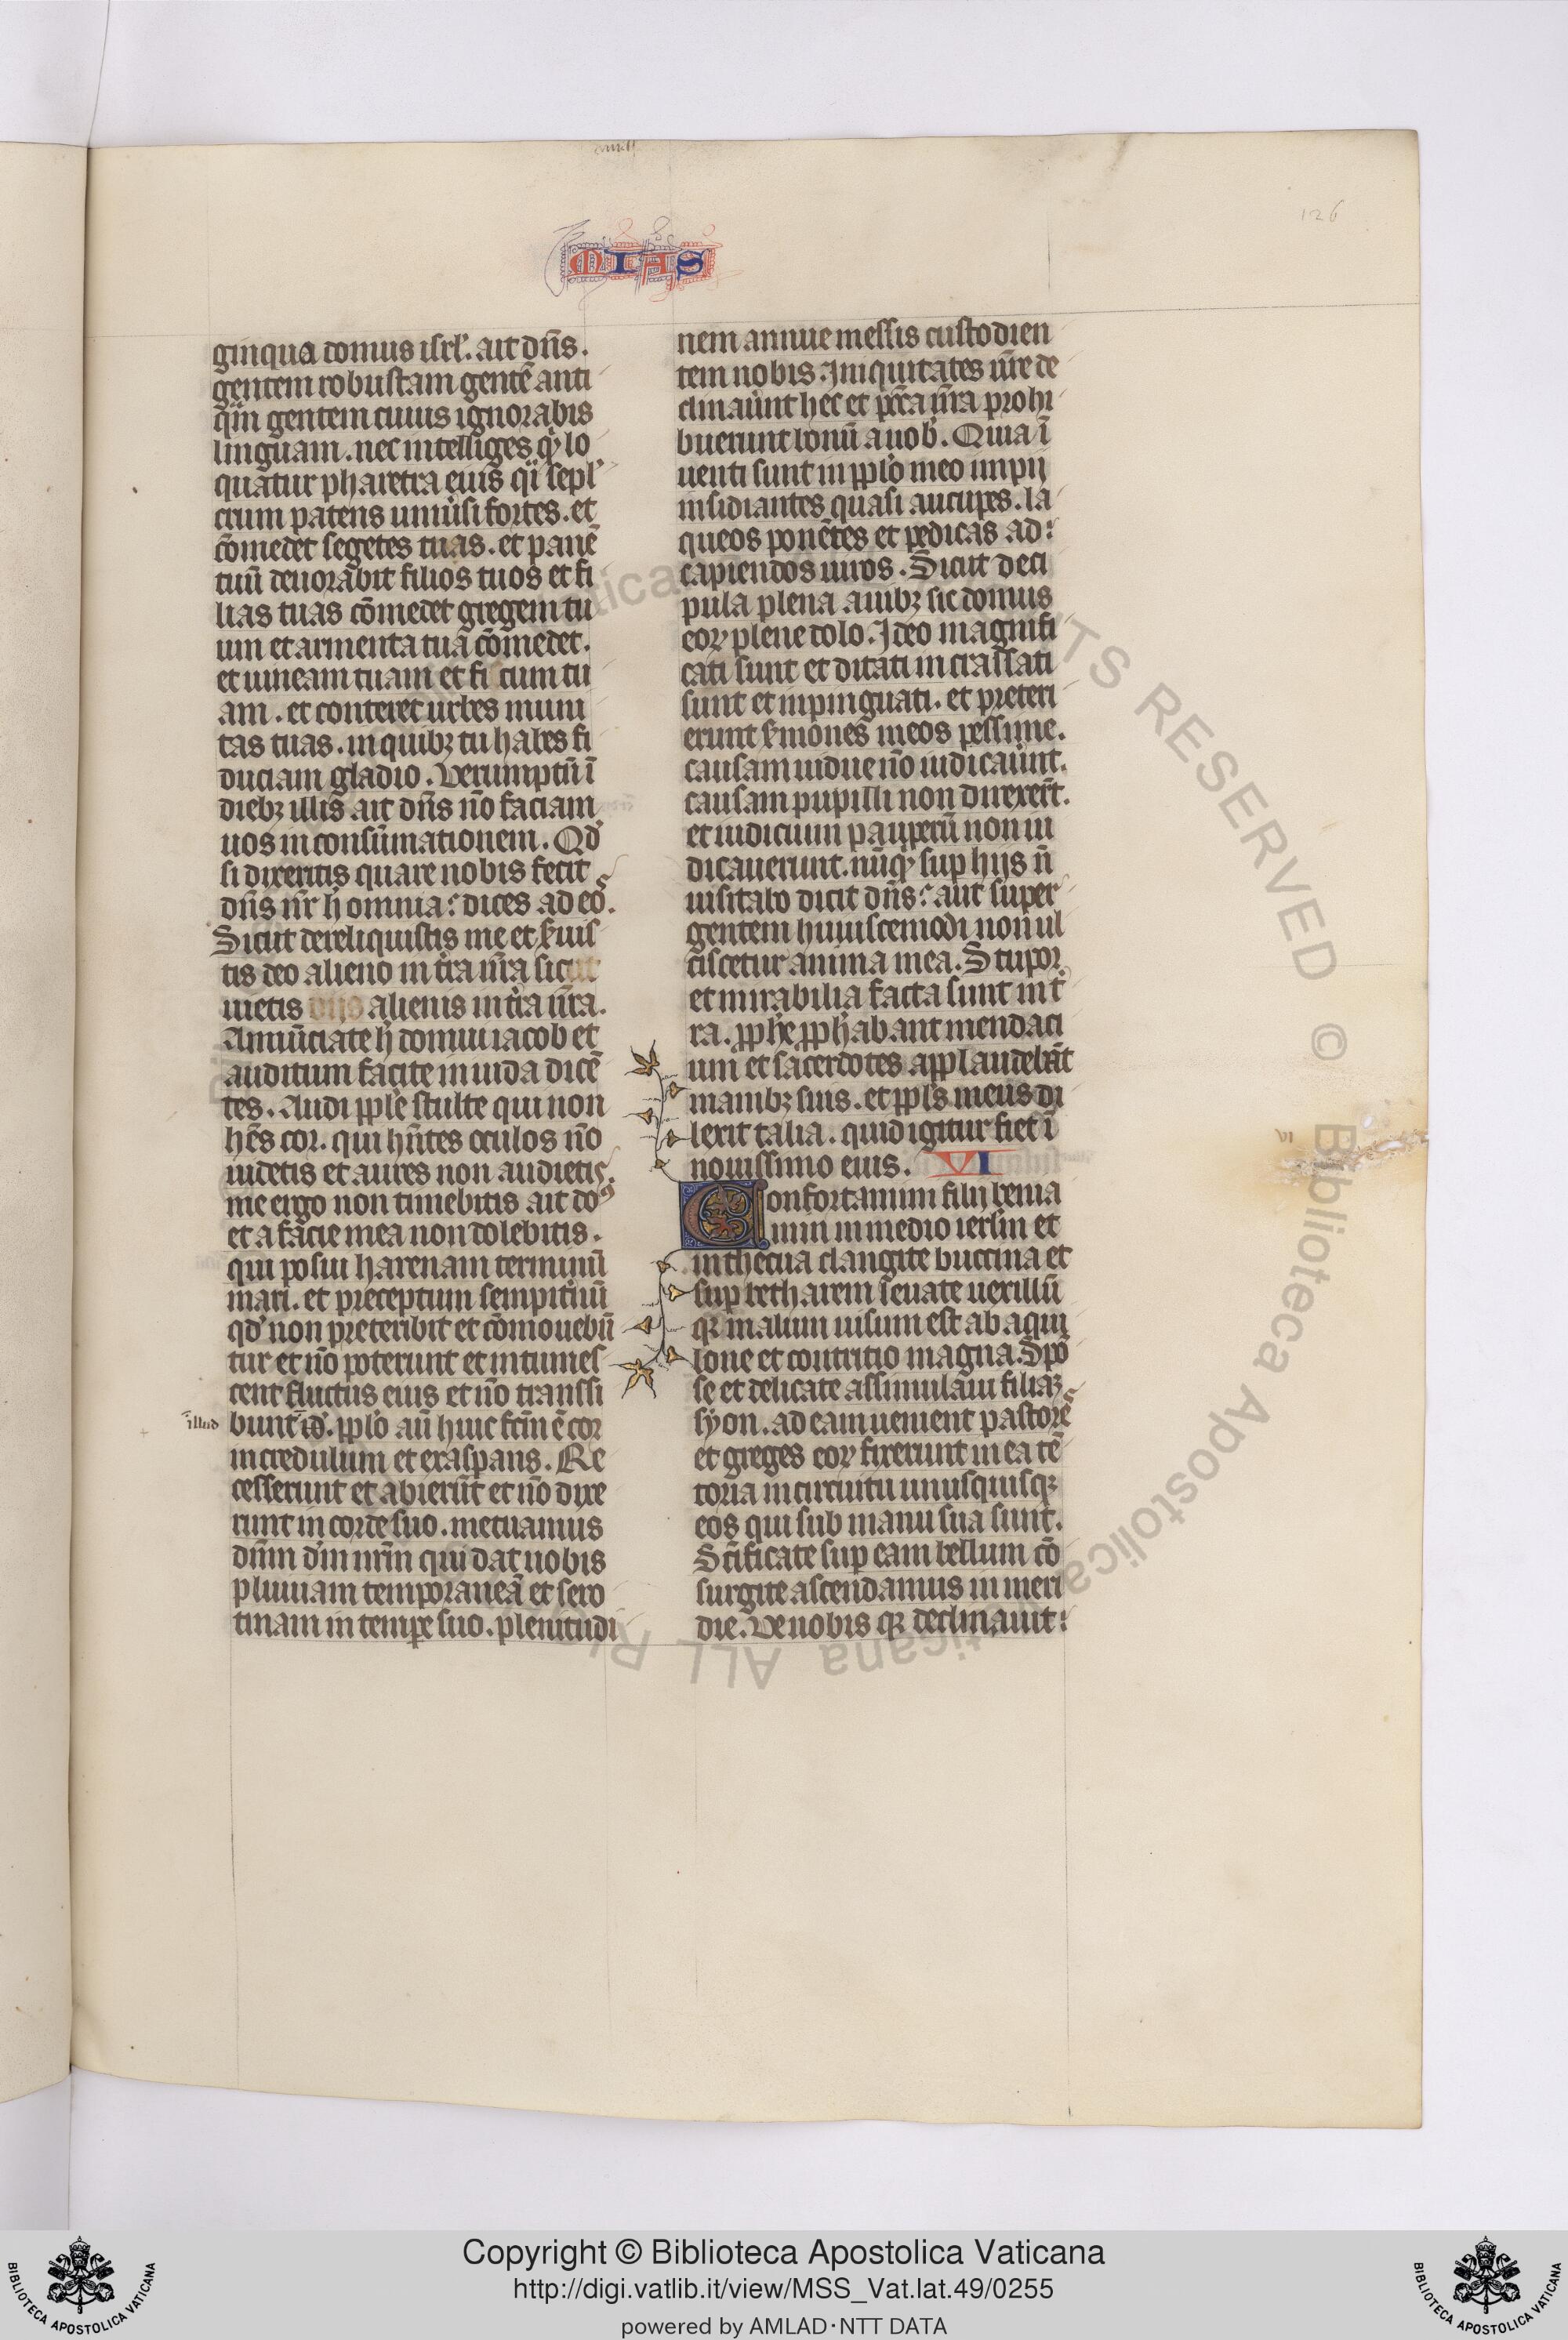 126
MIAS
ginqua domus isrl'. ait dn̄s.
gentem robustam gentē anti
qͣm gentem cuius ignorabis
linguam. nec intelliges qͥd lo
quatur pharetra eius qͣi sepl'
crum patens uniũsi fortes. et
cōmedet segetes tuas. et panē
tuū deuorabit filios tuos et fi
lias tuas cōmedet gregem tu
um et armenta tua cōmedet.
et uineam tuam et fi cum tu
am. et conteret urbes muni
tas tuas. in quibꝫ tu habes fi
duciam gladio. Verumptn̄ ī
diebꝫ illis ait dn̄s nō faciam
uos in consūmationem. Qd'
si dixeritis quare nobis fecit
dn̄s nr̄ h̄ omnia: dices ad eos.
Sicut dereliquistis me et s̄uis
tis deo alieno in tr̄a ur̄a sicut
uietis diis alienis in tr̄a ur̄a.
Annūciate h̄ domui iacob et
auditum facite in iuda dicē
tes. Audi pple stulte qui non
hēs cor. qui hn̄tes oculos nō
uidetis et aures non audietis.
me ergo non timebitis ait dōs
et a facie mea non dolebitis.
qui posui harenam terminū
mari. et preceptum sempitnū
qd' non preteribit et cōmouebū
tur et nō poterunt et intumes
cent fluctus eius et nō transsi
illud bunt id'. pplo au huic fcm̄ ē cor
incredulum et exasꝑans. Re
cesserunt et abierūt et nō dixe
runt in corde suo. metuamus
dn̄m dm̄ nrm̄ qui dat nobis
pluuiam temporaneā et sero
tinam in tempe suo. plenitudi
nem annue messis custodien
tem nobis. Iniquitates ur̄e de
clinaũnt hec et pcc̄a ur̄a prohi
buerunt bonū a uob'. Quia ī
uenti sunt in pplo meo impij
insidiantes quasi aucupes. la
queos ponētes et pedicas ad:
capiendos uiros. Sicut deci
pula plena auibꝫ sic domus
eoꝝ plene dolo. Ideo magnifi
cati sunt et ditati incrassati
sunt et inpinguati. et preteri
erunt s̄mones meos pessime.
causam uidue nō iudicaũnt.
causam pupilli non direxer̄t.
et iudicium paupeū non iu
dicauerunt. nūqͥd suꝑ hijs n̄
uisitabo dicit dn̄s: aut super
gentem huiuscemodi non ul
ciscetur anima mea. Stupor
et mirabilia facta sunt in t̄
ra. pph̄e pph̄abant mendaci
um et sacerdotes applaudebāt
manibꝫ suis. et ppl's meus di
lexit talia. quid igitur fiet ī
nouissimo eius. VI
Confortamini filij benia
min in medio ierl'm et
in thecua clangite buccina et
suꝑ betharem leuate uexillū
qꝛ malum uisum est ab aqui
lone et contritio magna. Spō
se et delicate assimulaui filiaꝫ
syon. ad eam uenient pastores
et greges eoꝝ fixerunt in ea tē
toria in circuitu unusquisqꝫ
eos qui sub manu sua sunt.
Sc̄ificate suꝑ eam bellum cō
surgite ascendamus in meri
die. Ve nobis qꝛ declinauit:
vi
Copyright © Biblioteca Apostolica Vaticana
http://digi.vatlib.it/view/MSS_Vat.lat.49/0255
powered by AMLAD·NTT DATA
BIBLIOTECA APOSTOLICA VATICANA
BIBLIOTECA APOSTOLICA VATICANA